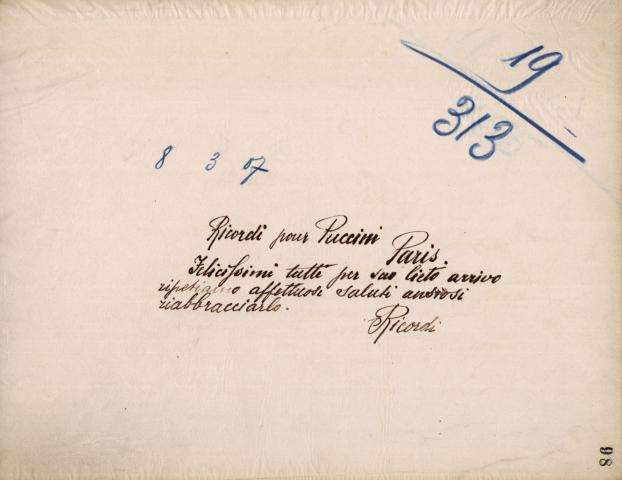 19
313
8 3 07
Ricordi pour Puccini Paris.
Felicissimi tutti per suo lieto arrivo
ripetiamo affettuosi saluti ansiosi
riabbracciarlo.
Ricordi
98